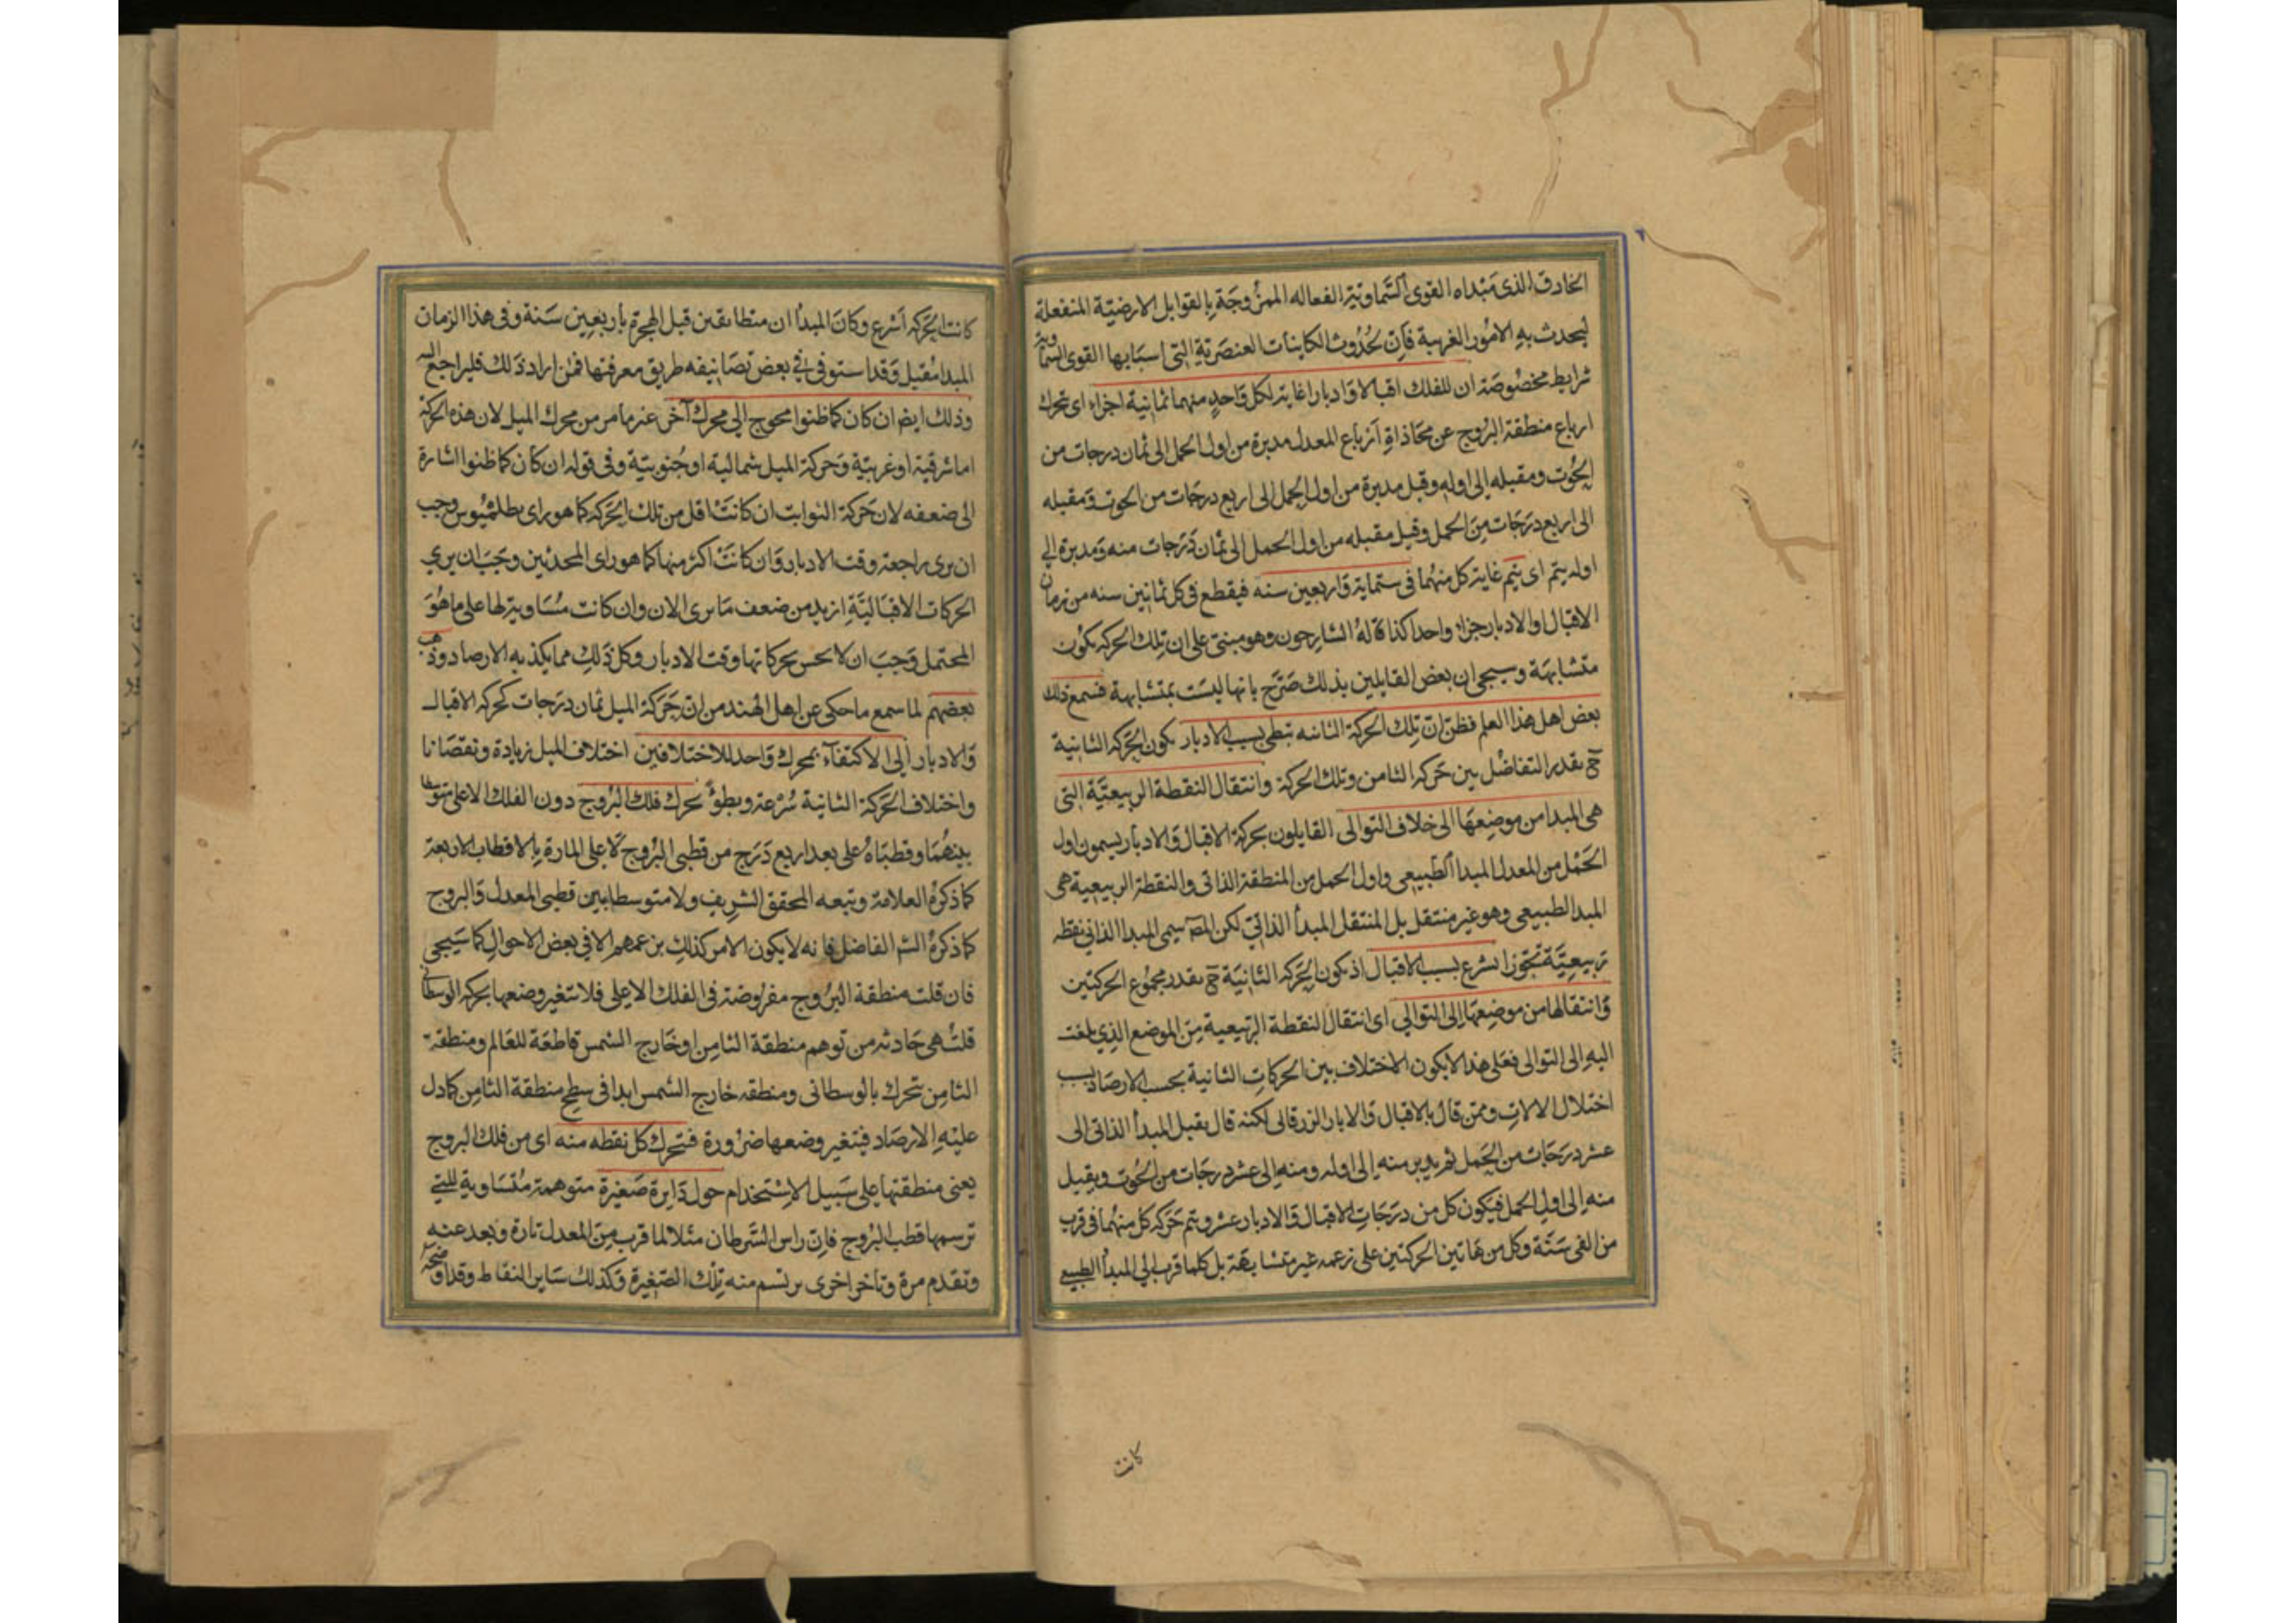 الخارق الذى مبداه القوى السماوية الفعاله الممزوجة بالقوابل الارضية المنفعلة
ليحدث به الامور الغريبة فان لحدوث الكاينات العنصرية التى اسبابها القوى السماوية
شرايط مخصوصة ان للفلك اقبالا وادبارا غاية لكل واحد منهما ثمانية اجزاء اى تحرك
ارباع منطقة البروج عن محاذاة ارباع المعدل مدبرة من اول الحمل الى ثمان درجات من
الحوت ومقبله الى اوله وقيل مدبرة من اول الحمل الى اربع درجات من الحوت ومقبله
الى اربع درجات من الحمل وقيل مقبله من اول الحمل الى ثمان درجات منه ومدبرة الى
اوله يتم اى يتم غاية كل منهما فى ستماية واربعين سنه فيقطع فى كل ثمانين سنه من زمان
الاقبال او الادبار جزءا واحدا كذا قاله الشارحون وهو مبنى على ان تلك الحركه يكون
متشابهة وسيجى ان بعض القايلين بذلك صرح بانها ليست بمتشابهة فسمع ذلك
بعض اهل هذا العلم فظن ان تلك الحركة الثانيه تبطى بسبب الادبار بكون الحركه الثانية
ح بقدر التفاضل بين حركه الثامن وتلك الحركة وانتقال النقطة الربيعية التى
هى المبدا من موضعها الى خلاف التوالى القايلون بحركة الاقبال والادبار يسمون اول
الحمل من المعدل المبدا الطبيعى واول الحمل من المنطقة الذاتى والنقطة الربيعية هى
المبدا الطبيعى وهو غير منتقل بل المنتقل المبدأ الذاتى لكن المص يسمى المبدا الذاتى نقطه
ربيعية تجوزا تسرع بسبب الاقبال اذ يكون الحركه الثانية ح بقدر مجموع الحركتين
وانتقالها من موضعها الى التوالى اى انتقال النقطة الربيعية من الموضع الذى بلغت
اليه الى التوالى فعلى هذا لا يكون الاختلاف بين الحركات الثانية بحسب الارصاد بسبب
اختلال الالات وممن قال بالاقبال والابار الزرقالى لكنه قال يقبل المبدأ الذاتى الى
عشر درجات من الحمل ثم يدبر منه الى اوله ومنه الى عشر درجات من الحوت ويقبل
منه الى اول الحمل فيكون كل من درجات الاقبال والادبار عشر ويتم حركه كل منهما فى قرب
من الفى سنة وكل من هاتين الحركتين على زعمه غير متشابهة بل كلما قرب الى المبدأ الطبيعى
كانت
كانت الحركه اسرع وكان المبدأ ان متطابقين قبل الهجرة باربعين سنة وفى هذا الزمان
المبدا مقبل وقد استوفى فى بعض تصانيفه طريق معرفتها فمن اراد ذلك فليراجع اليه
وذلك ايضا ان كان كما ظنوا محوج الى محرك آخر غير ما مر من محرك الميل لان هذه الحركة
اما شرقية او غربية وحركة الميل شمالية او جنوبية وفى قوله ان كان كما ظنوا اشارة
الى ضعفه لان حركة الثوابت ان كانت اقل من تلك الحركه كما هو راى بطلميوس وجب
ان يرى راجعة وقت الادبار وان كانت اكثر منها كما هو راى المحدثين وجب ان يرى
الحركات الاقبالية ازيد من ضعف ما يرى الان وان كانت مساوية لها على ما هو
المحتمل وجب ان لا يحس بحركاتها وقت الادبار وكل ذلك مما يكذبه الارصاد وذهب
بعضهم لما سمع ما حكى عن اهل الهند من ان حركة الميل ثمان درجات كحركه الاقبال
والادبار الى الاكتفاء بمحرك واحد للاختلافين اختلاف الميل زيادة ونقصانا
واختلاف الحركة الثانية سرعة وبطوء يحرك فلك البروج دون الفلك الاعلى متوسطا
بينهما وقطباه على بعد اربع درج من قطبى البروج لا على المارة بالاقطاب الاربعة
كما ذكره العلامة وتبعه المحقق الشريف ولا متوسطا بين قطبى المعدل والبروج
كما ذكره الش الفاضل فانه لا يكون الامر كذلك بزعمهم الا فى بعض الاحوال كما سيجى
فان قلت منطقة البروج مفروضة فى الفلك الاعلى فلا تتغير وضعها بحركه الوسطانى
قلت هى حادثه من توهم منطقة الثامن او خارج الشمس قاطعة للعالم ومنطقة
الثامن يتحرك بالوسطانى ومنطقه خارج الشمس ابدا فى سطح منطقة الثامن كما دل
عليه الارصاد فيتغير وضعها ضرورة فتحرك كل نقطه منه اى من فلك البروج
يعنى منطقتها على سبيل الاستخدام حول دايرة صغيرة متوهمة متساوية للتى
ترسمها قطب البروج فان راس السرطان مثلا لما قرب من المعدل تارة وبعد عنه
وتقدم مرة وتاخر اخرى يرتسم منه تلك الصغيرة وكذلك ساير النقاط وقد اوضحه